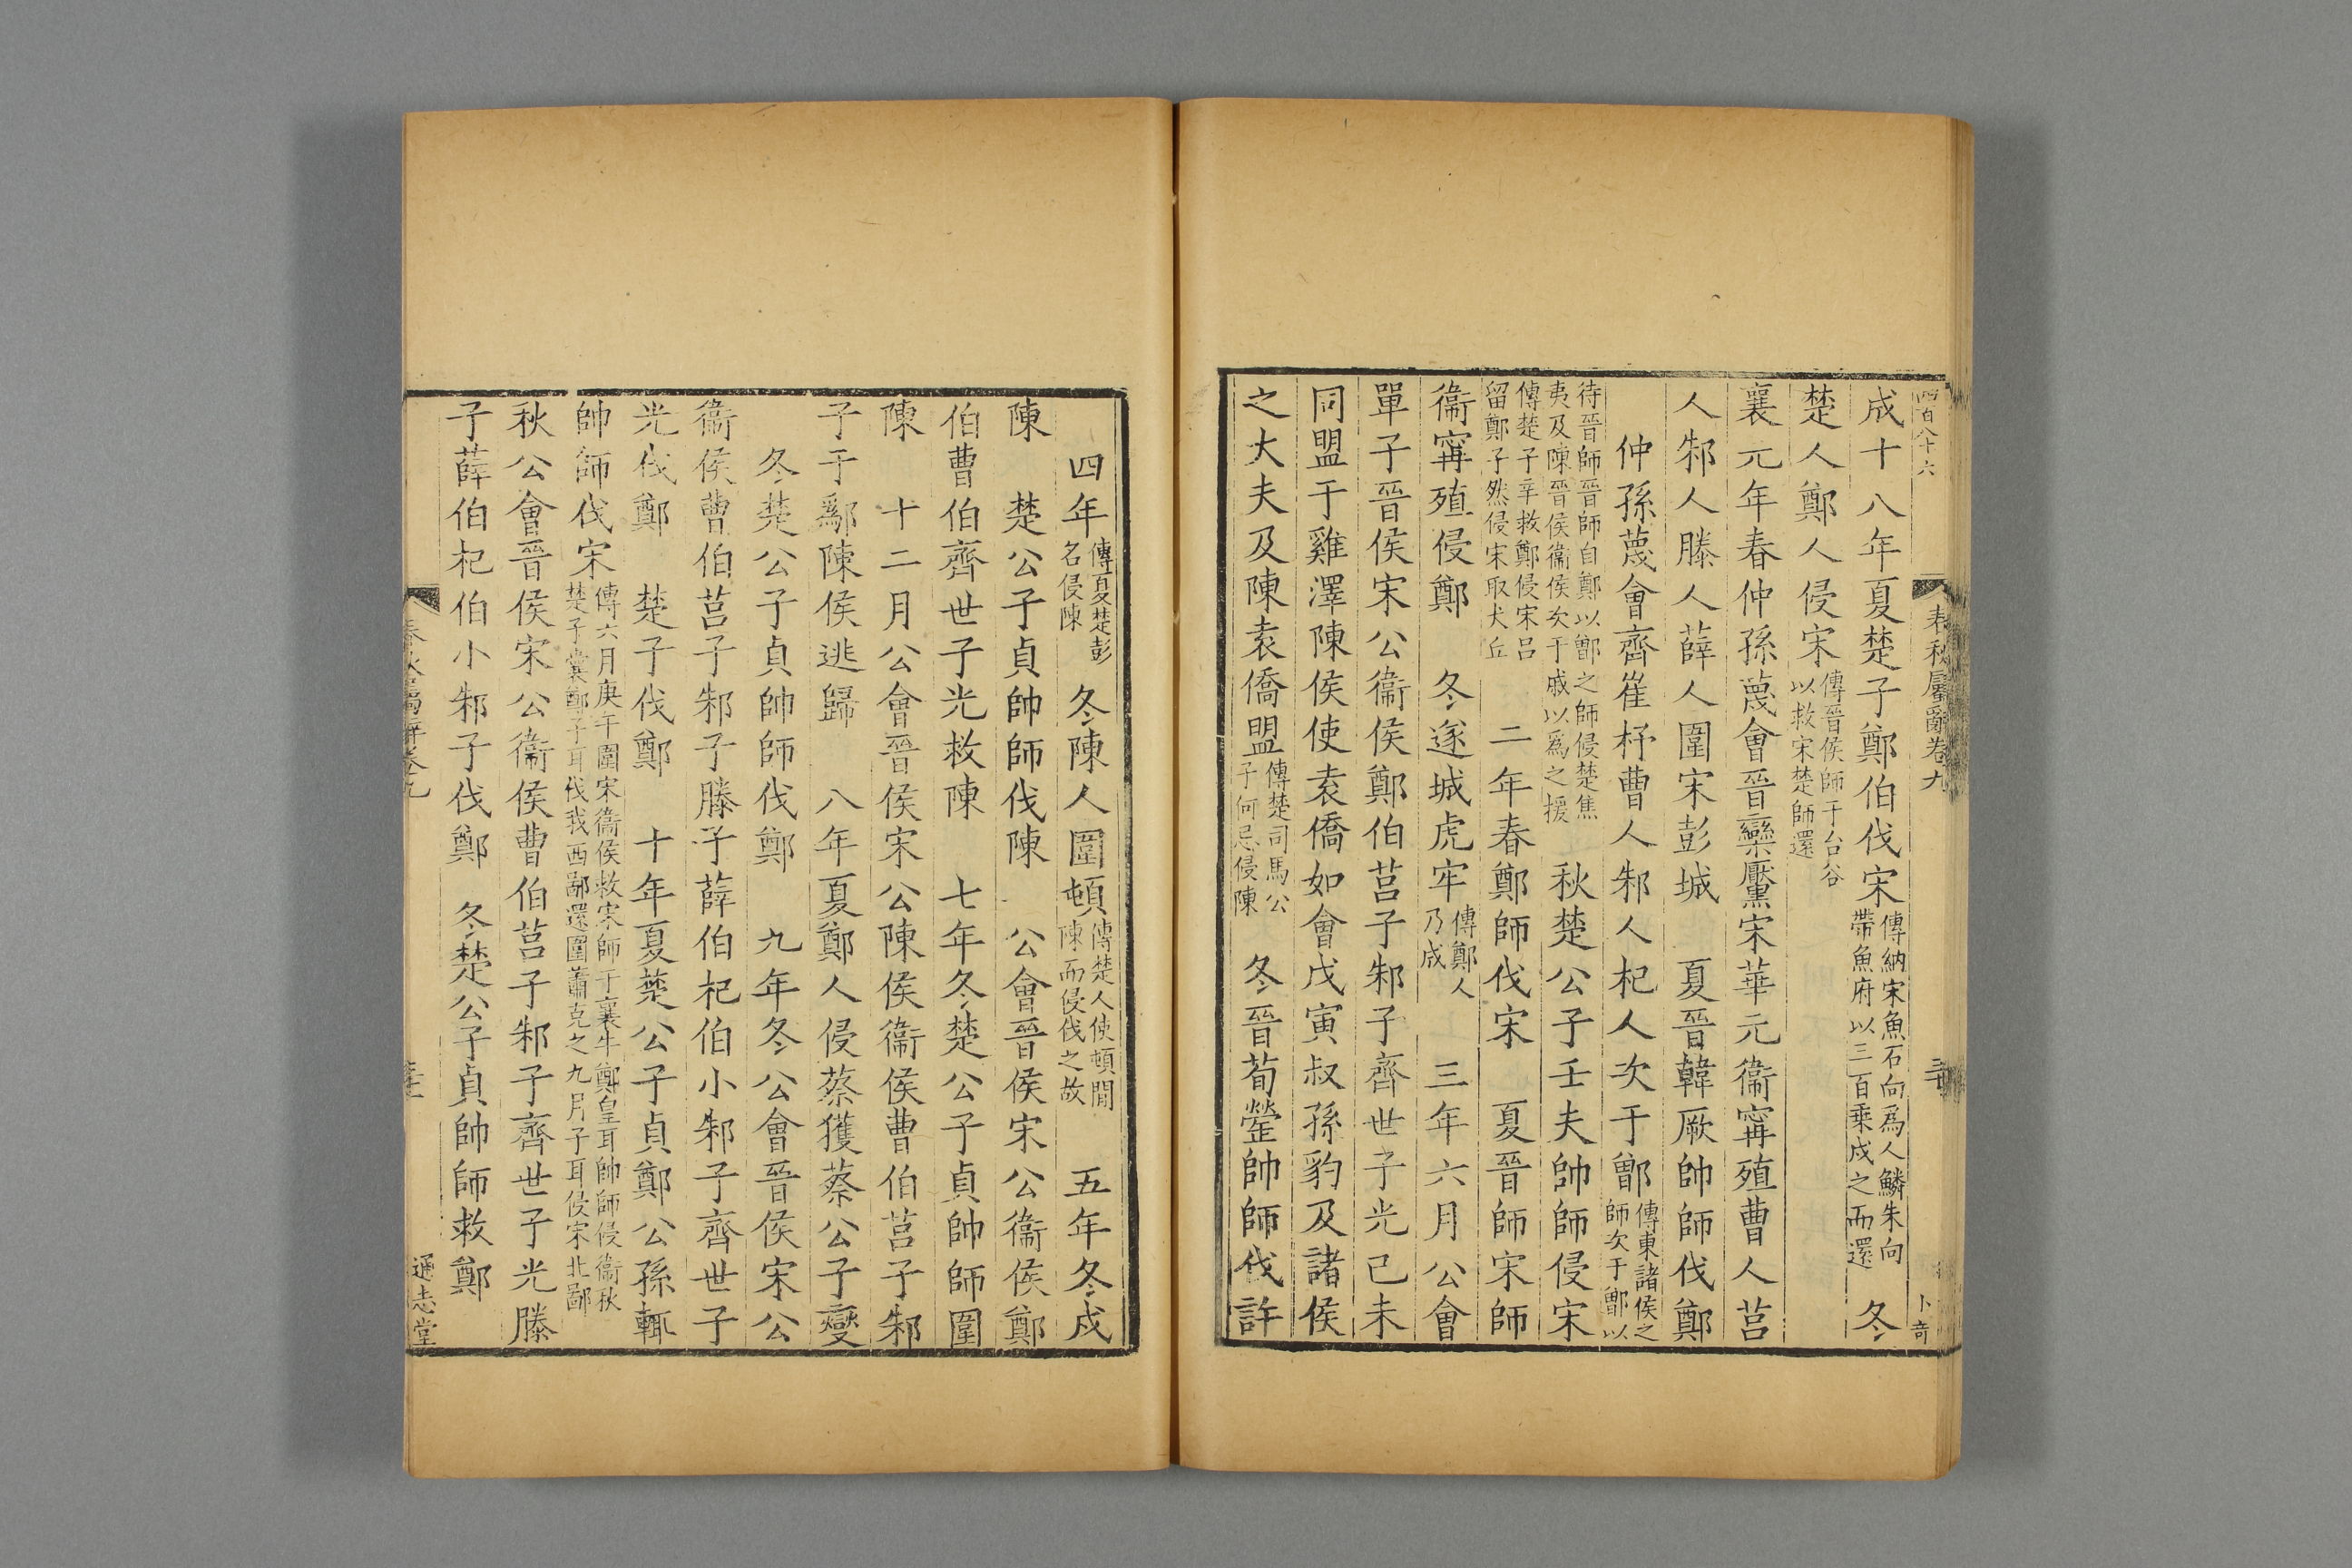 四百八十六
春秋屬辭卷九
卜奇
成十八年夏楚子鄭伯伐宋傳納宋魚石向爲人鱗朱向帶魚府以三百乗戍之而還 冬
楚人鄭人侵宋傳晉侯師于台谷以救宋楚師還
襄元年春仲孫蔑會晉欒黶宋華元衞甯殖曹人莒
人邾人滕人薛人圍宋彭城 夏晉韓厥帥師伐鄭
仲孫蔑會齊崔杼曹人邾人杞人次于鄫傳東諸侯之師次于鄫以
待晉師晉師自鄭以鄫之師侵楚焦夷及陳晉侯衞侯次于戚以爲之援 秋楚公子壬夫帥師侵宋
傳楚子辛救鄭侵宋呂留鄭子然侵宋取犬丘 二年春鄭師伐宋 夏晉師宋師
衞甯殖侵鄭 冬遂城虎牢傳鄭人乃成 三年六月公會
單子晉侯宋公衞侯鄭伯莒子邾子齊世子光己未
同盟于雞澤陳侯使袁僑如會戊寅叔孫豹及諸侯
之大夫及陳袁僑盟傳楚司馬公子何忌侵陳 冬晉荀罃帥師伐許
四年傳夏楚彭名侵陳 冬陳人圍頓傳楚人使頓閒陳而侵伐之故 五年冬戍
陳 楚公子貞帥師伐陳 公會晉侯宋公衞侯鄭
伯曹伯齊世子光救陳 七年冬楚公子貞帥師圍
陳 十二月公會晉侯宋公陳侯衞侯曹伯莒子邾
子于鄬陳侯逃歸 八年夏鄭人侵蔡獲蔡公子燮
冬楚公子貞帥師伐鄭 九年冬公會晉侯宋公
衞侯曹伯莒子邾子滕子薛伯杞伯小邾子齊世子
光伐鄭 楚子伐鄭 十年夏楚公子貞鄭公孫輒
帥師伐宋傳六月庚午圍宋衞侯救宋師于襄牛鄭皇耳帥師侵衞秋楚子囊鄭子耳伐我西鄙還圍蕭克之九月子耳侵宋北鄙
秋公會晉侯宋公衞侯曹伯莒子邾子齊世子光滕
子薛伯杞伯小邾子伐鄭 冬楚公子貞帥師救鄭
春秋屬辭卷九
通志堂